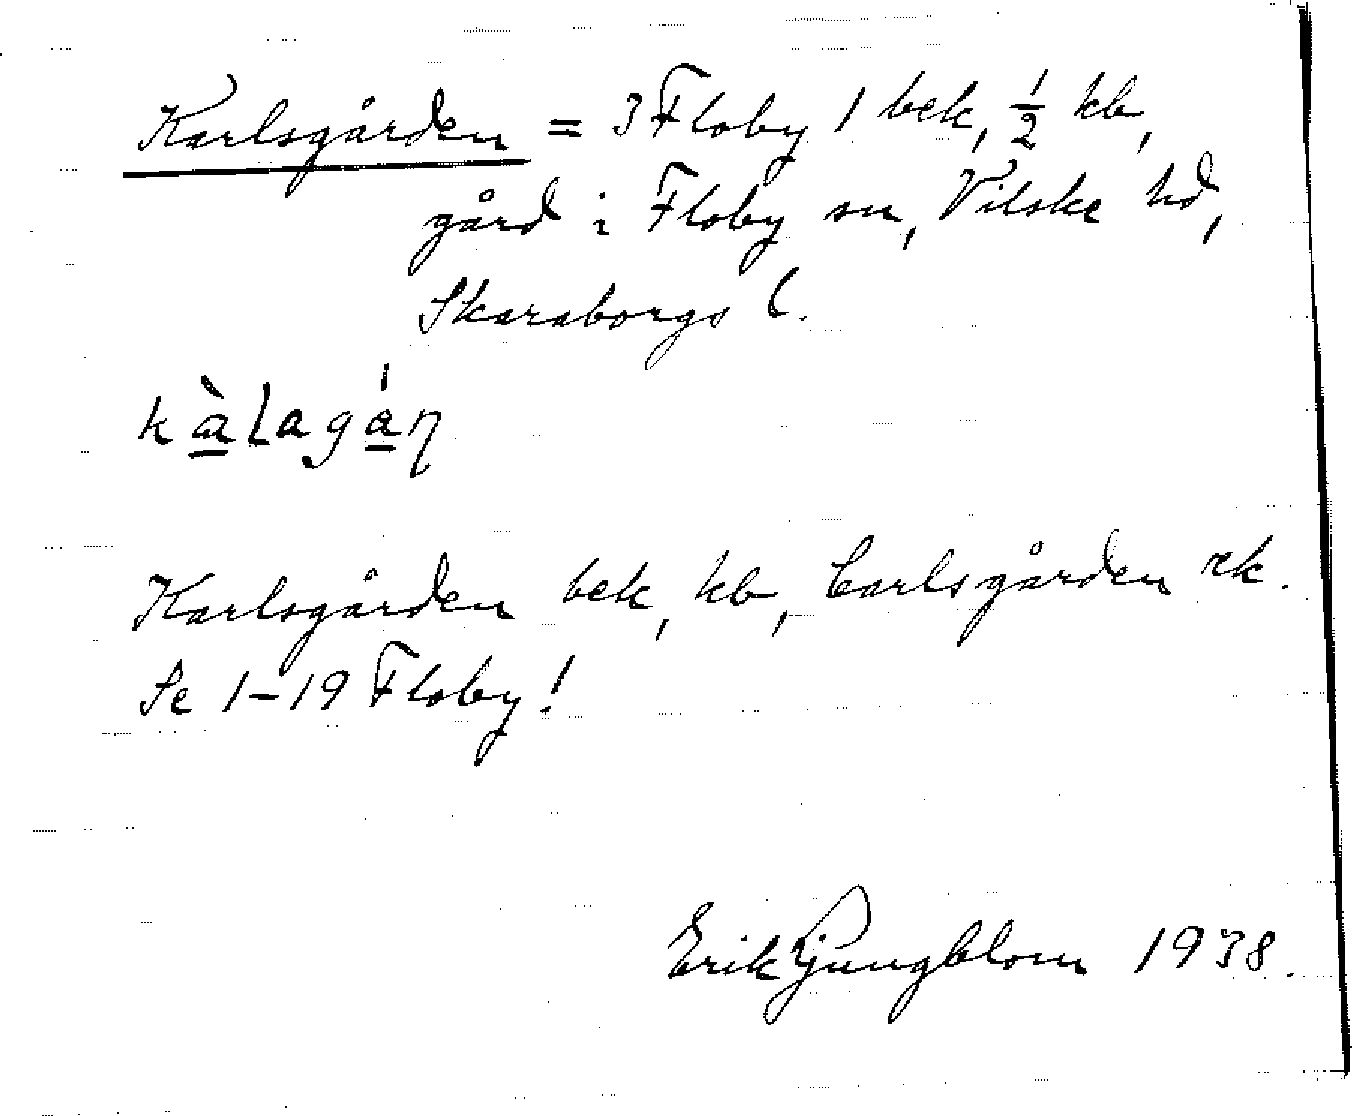 Karlsgården = 3 Floby 1 bek, ½ kb,
gård i Floby sn, Vilske hd,
Skaraborgs l.
kàLagáṇ
Karlsgården bek, kb, Carlsgården rk.
Se 1–19 Floby!
Erik Ljungblom 1938.